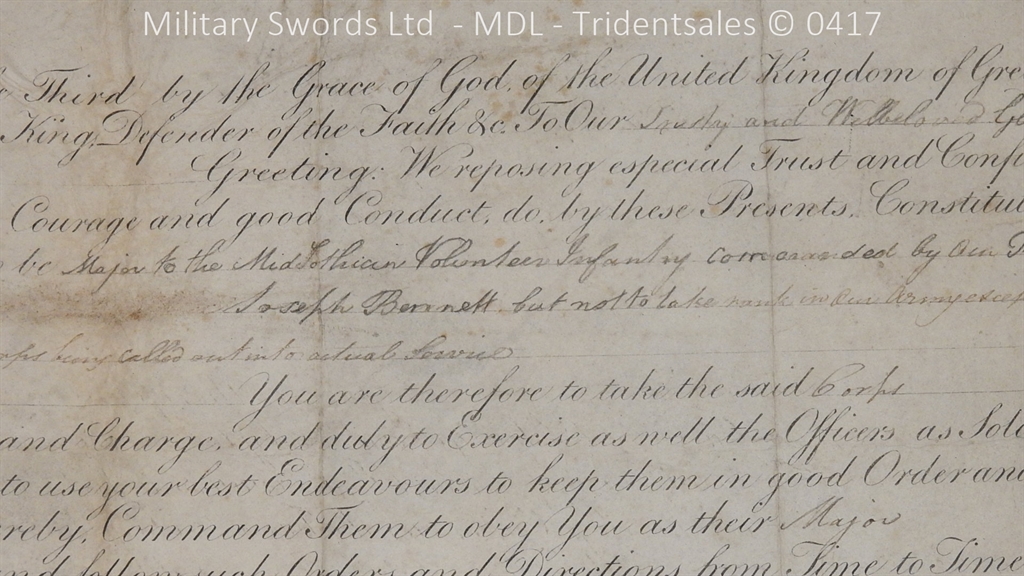 Military Swords Ltd - MDL - Tridentsales © 0417
Third by the Grace of God, of the United Kingdom of Gre
King, Defender of the Faith &c. To Our Trusty and Wellbeloved
Greeting: We reposing especial Trust and Conf
Courage and good Conduct, do, by these Presents, Constitut
be Major to the Midlothian Volunteer Infantry commanded by our
Joseph Bennett but not to take rank in our Army except
being called out into actual Service
You are therefore to take the said Corps
and Charge, and duly to Exercise as well the Officers as Sol
to use your best Endeavours to keep them in good Order and
reby, Command Them to obey You as their Major
and follow such Orders and Directions from Time to Time